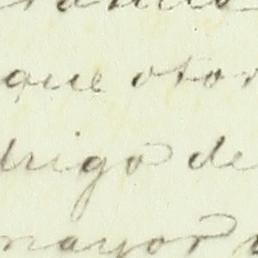 que otor
drigo de
mayor